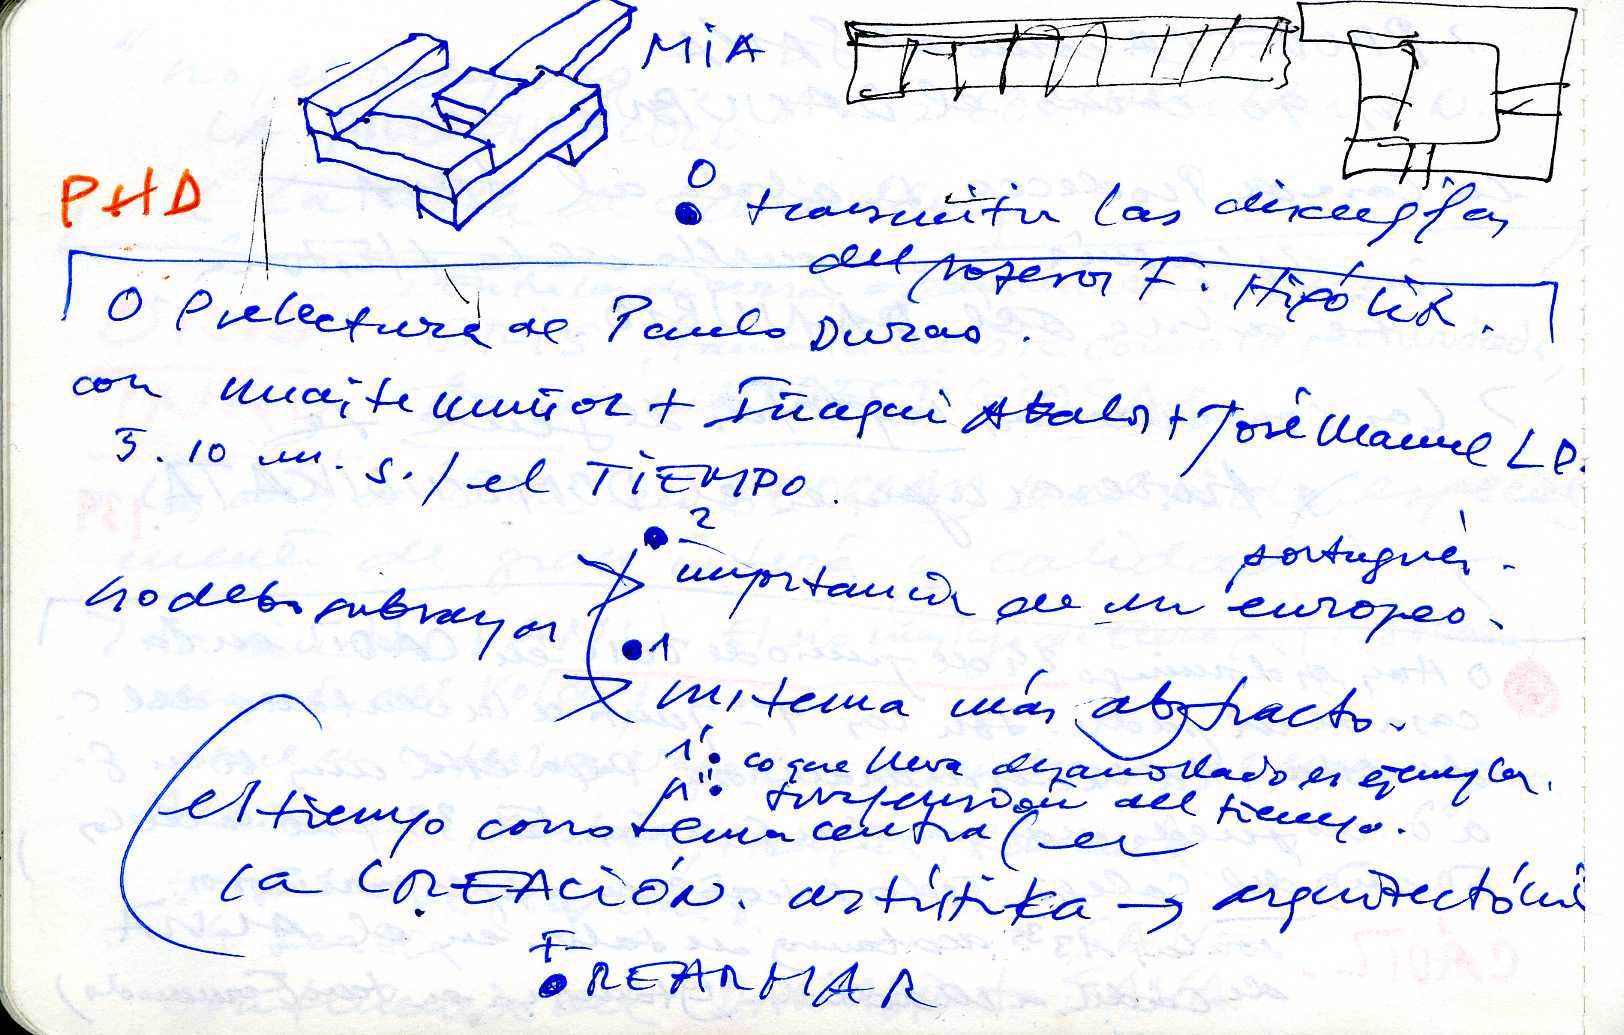 MiA
PHD
0
transmitir las disculpas
del profesor F. Hipólit.
O Prelectura de Paulo Durao.
con Maite Muñoz + Iñaqui Abalos + José Manuel L P.
5. 10 m. s./ el TIEMPO.
2
importancia de un europeo.
portugués.
no debo subrayar
1
mi tema más abstracto.
1' lo que lleva desarrollado es ejemplar.
1'' suspensión del tiempo.
el tiempo como tema central en
la CREACIÓN. artístika → arquitectóni
F
REARMAR